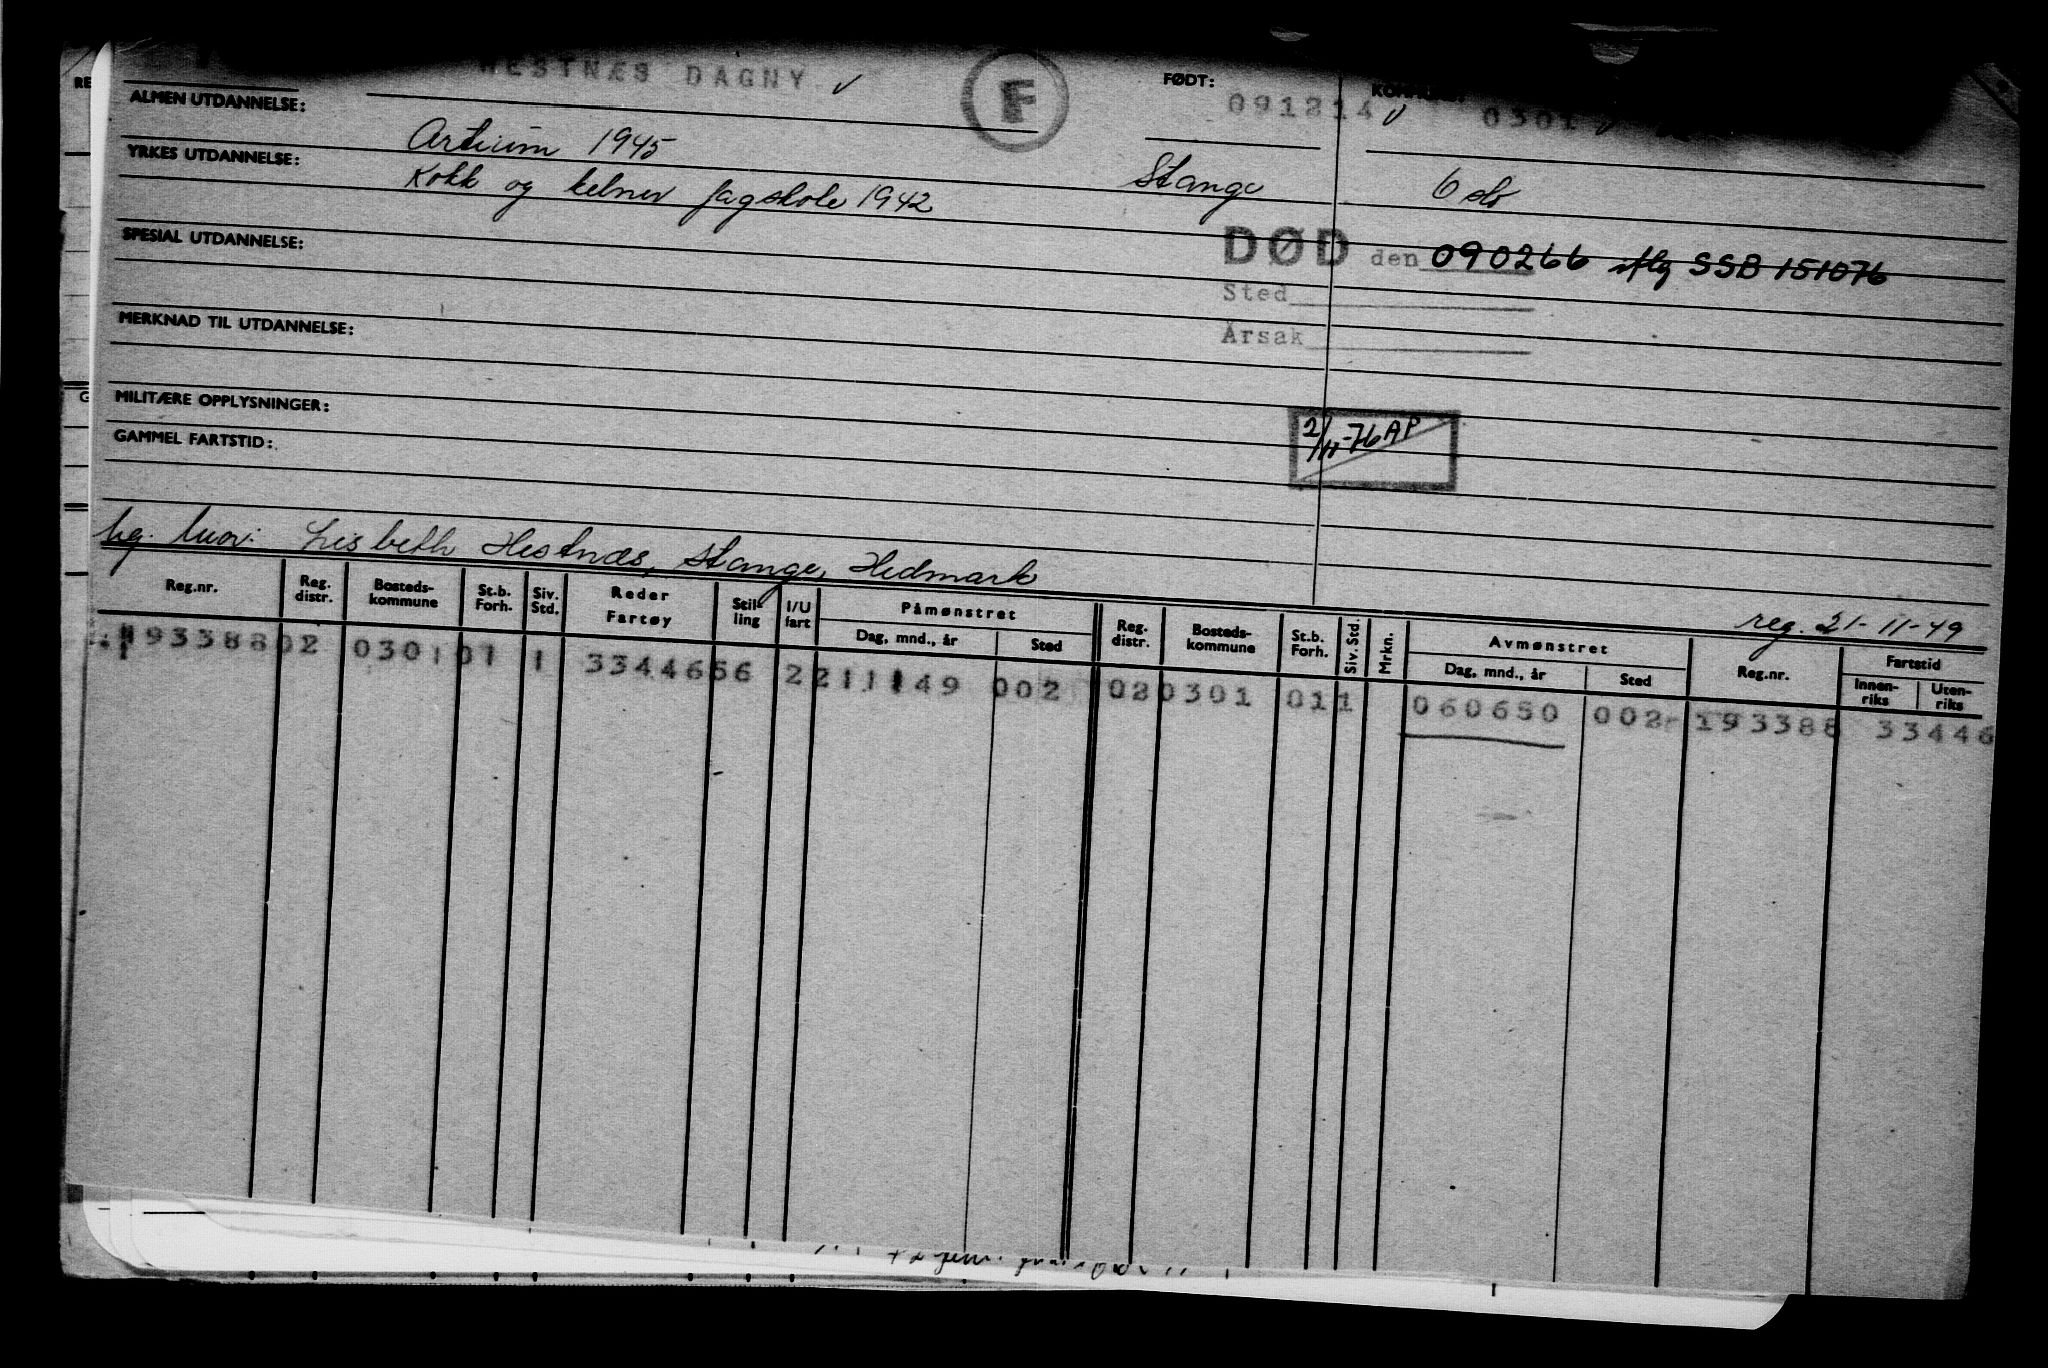 HESTNÆS DAGNY ✓ F FØDT: 091214 ✓ KOMMUNE: 0301 ✓
ALMEN UTDANNELSE: Artium 1945
YRKES UTDANNELSE: Kokk og kelner fagskole 1942 Stange Oslo
SPESIAL UTDANNELSE: DØD den 090266 iflg SSB 151076
Sted
Årsak
MERKNAD TIL UTDANNELSE:
MILITÆRE OPPLYSNINGER: 2/11-76 AP
GAMMEL FARTSTID:
Mor: Lisbeth Hestnæs, Stange, Hedmark
reg. 21-11-49
Reg.nr. Reg. distr. Bosteds-kommune St.b. Forh. Siv. Std. Reder Fartøy Stil-ling I/U fart Påmønstret Dag, mnd., år Sted Reg. distr. Bosteds-kommune St.b. Forh. Siv. Std. Mrkn. Avmønstret Dag, mnd., år Sted Reg.nr. Fartstid Innen-riks Uten-riks
193388 02 0301 01 1 33446 56 2 211149 002 02 0301 01 1 060650 002 193388 33446